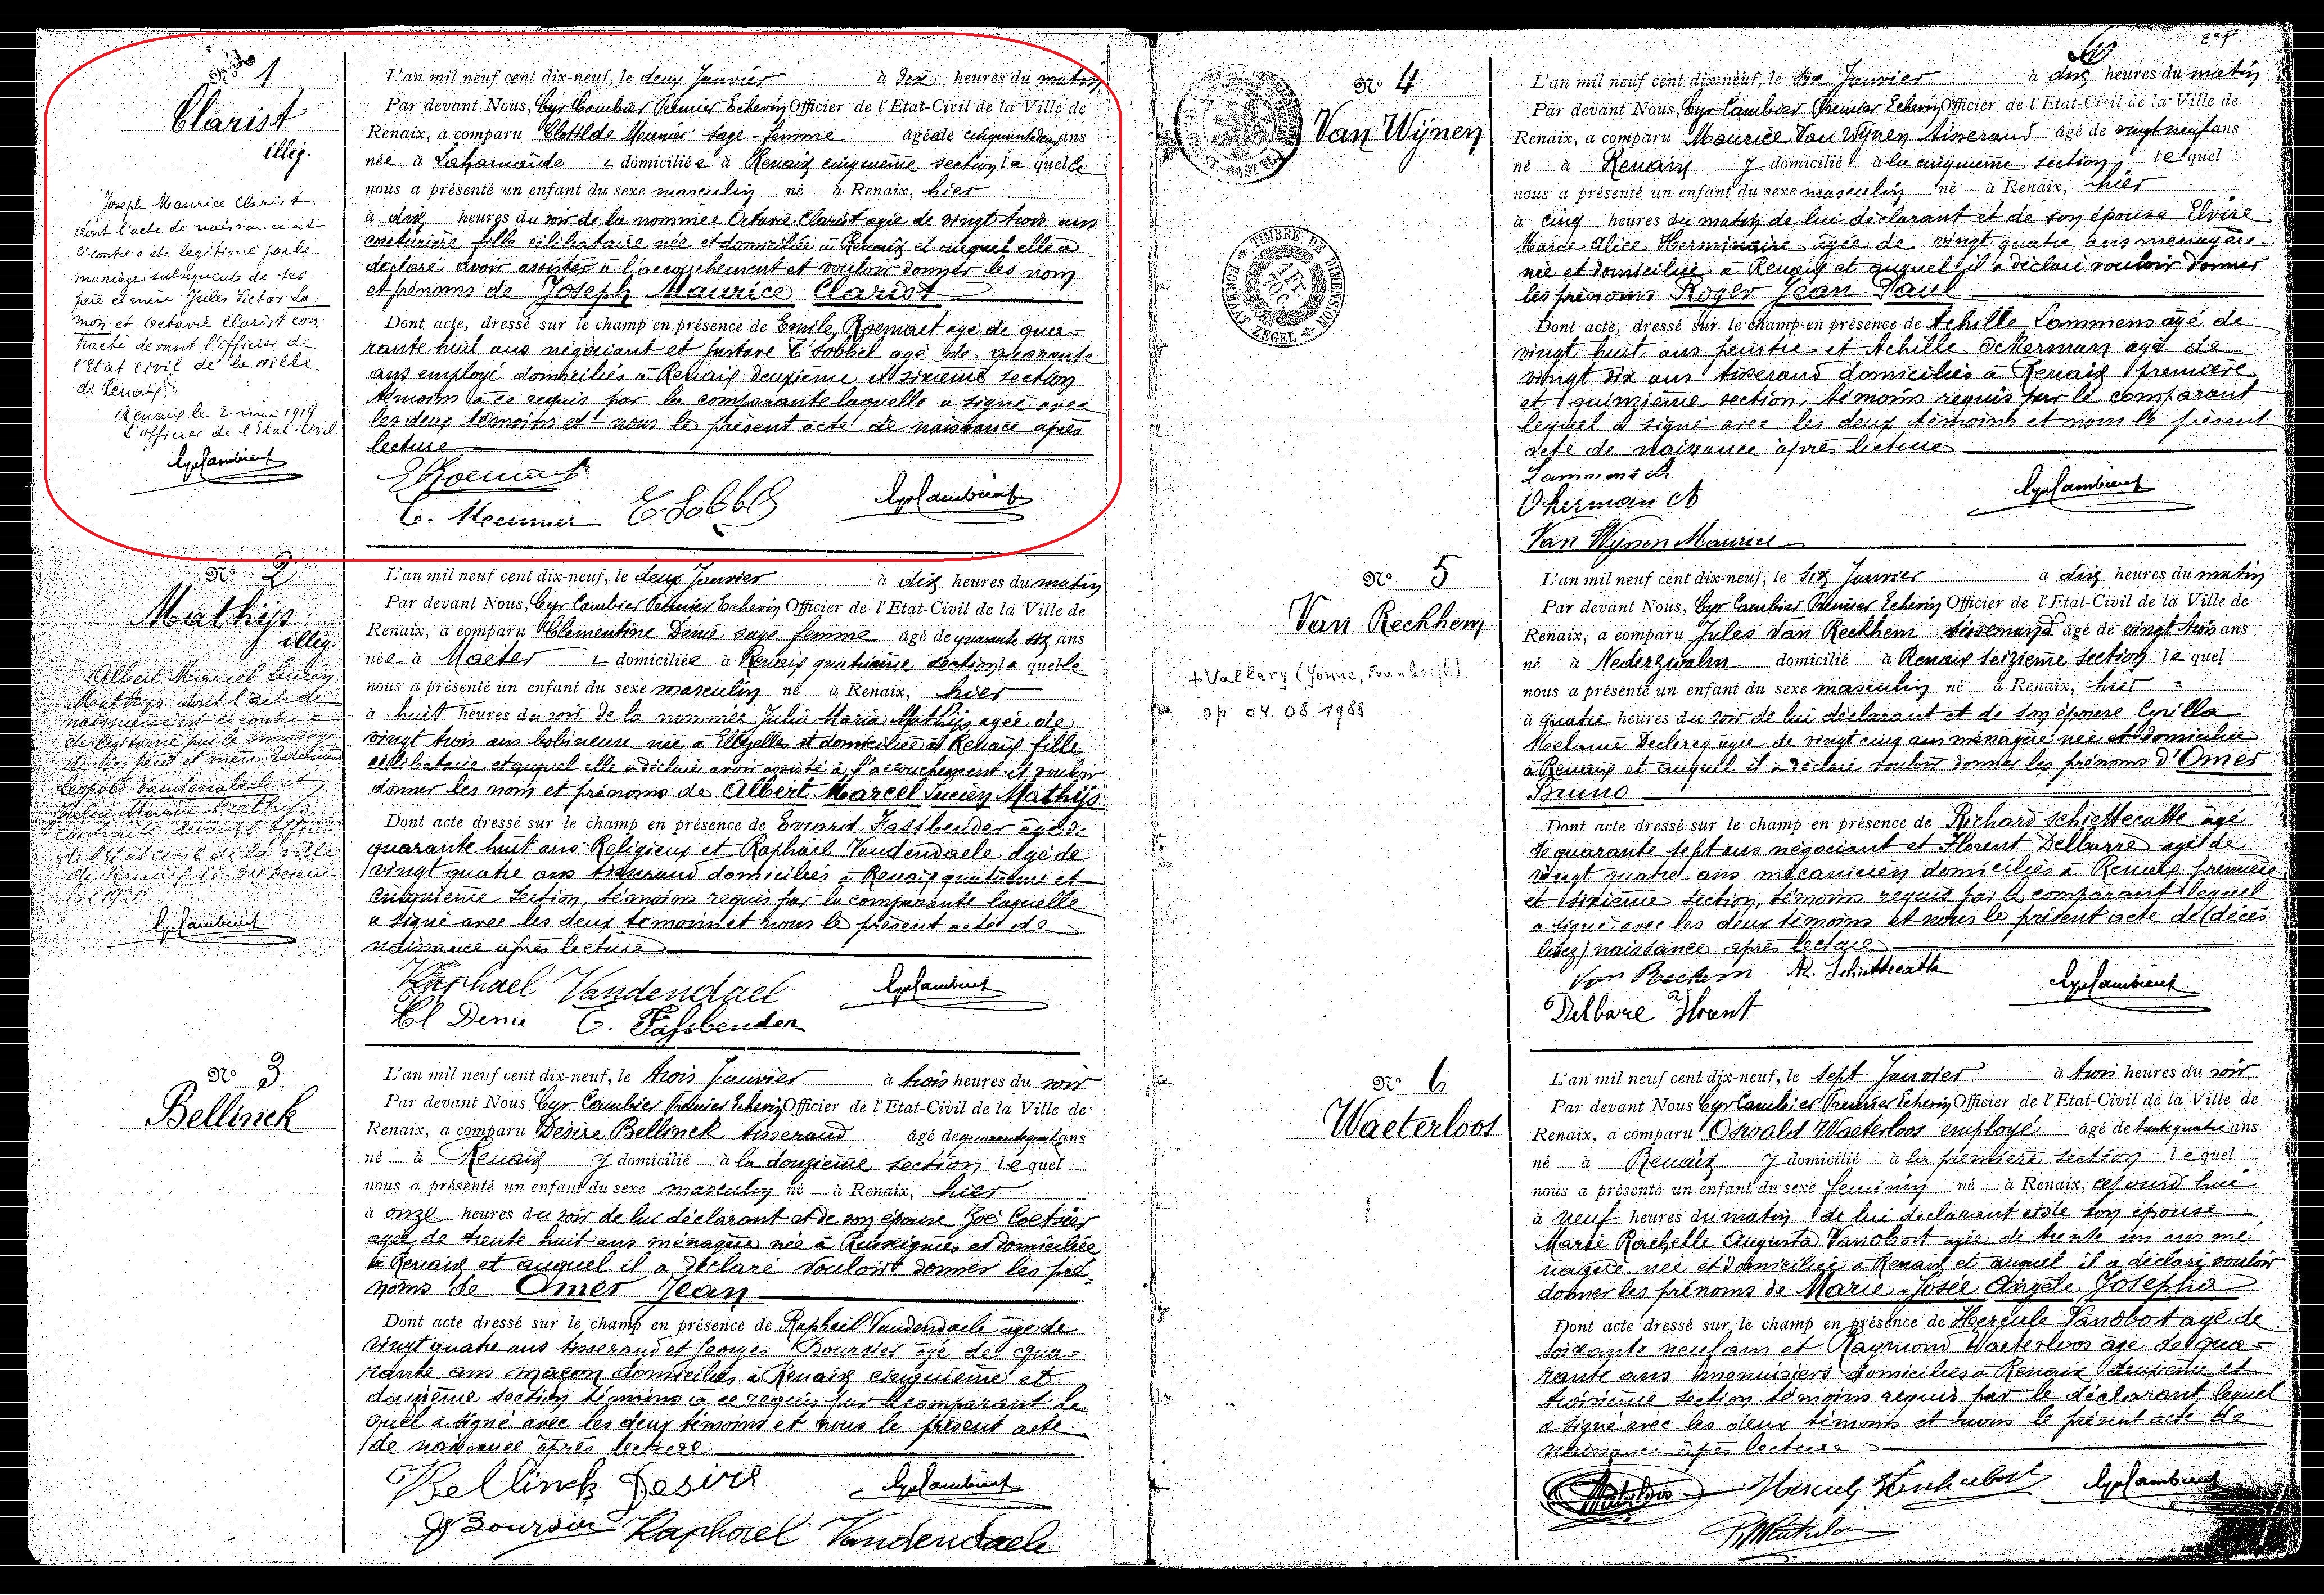 No 1
Clarist
illég.
Joseph Maurice Clarist
dont l'acte de naissance est
ci contre a été légitimé par le
mariage subséquent de ses
père et mère Jules Victor La-
mon et Octavie Clarist con
tracté devant l'officier de
l'Etat civil de la ville
de Renaix.
Renaix le 2 mai 1919
L'officier de l'Etat-Civil
Cyr Cambier
L'an mil neuf cent dix-neuf, le deux Janvier à dix heures du matin
Par devant Nous, Cyr Cambier Premier Echevin Officier de l'Etat-Civil de la Ville de
Renaix, a comparu Clotilde Meunier sage-femme âgée de cinquante deux ans
née à Lahamaide domiciliée à Renaix cinquième section laquelle
nous a présenté un enfant du sexe masculin né à Renaix, hier
à dix heures du soir de la nommée Octavie Clarist agée de vingt trois ans
couturière fille célibataire née et domiciliée à Renaix et auquel elle a
déclaré avoir assister à l'accouchement et vouloir donner les nom
et prénoms de Joseph Maurice Clarist
Dont acte, dressé sur le champ en présence de Emile Roemaet agé de qua-
rante huit ans négociant et Gustave T'Sobbel agé de quarante
ans employé domiciliés à Renaix deuxième et sixième section
témoins à ce requis par la comparante laquelle a signé avec
les deux témoins et nous le présent acte de naissance après
lecture
E Roemaet
C. Meunier
Cyr Cambier
No 2
Mathijs
illég.
Albert Marcel Lucien
Mathijs dont l'acte de
naissance est ci contre a
été légitimé par le mariage
de ses père et mère
Léopold Vandendaele et
Julia Maria Mathijs
contracté devant l'officier
de l'Etat civil de la ville
de Renaix le 24 Décem
bre 1920
Cyr Cambier
L'an mil neuf cent dix-neuf, le deux Janvier à dix heures du matin
Par devant Nous, Cyr Cambier Premier Echevin Officier de l'Etat-Civil de la Ville de
Renaix, a comparu Clementine Denie sage femme âgé de quarante six ans
née à Maeter domiciliée à Renaix quatrième section laquelle
nous a présenté un enfant du sexe masculin né à Renaix, hier
à huit heures du soir de la nommée Julia Maria Mathijs agée de
vingt trois ans bobineuse née à Ellezelles et domiciliée à Renaix fille
célibataire et auquel elle a déclaré avoir assisté à l'accouchement et vouloir
donner les nom et prénoms de Albert Marcel Lucien Mathijs
Dont acte dressé sur le champ en présence de Evrard Fassbender agé de
quarante huit ans Religieux et Raphaël Vandendaele agé de
vingt quatre ans tisserand domiciliés à Renaix quatrième et
cinquième section, témoins requis par la comparante laquelle
a signé avec les deux témoins et nous le présent acte de
naissance après lecture
Raphael Vandendael
Cyr Cambier
Cl Denie
Fassbender
No 3
Bellinck
L'an mil neuf cent dix-neuf, le trois Janvier à trois heures du soir
Par devant Nous Cyr Cambier Premier Echevin Officier de l'Etat-Civil de la Ville de
Renaix, a comparu Désiré Bellinck tisserand âgé de quarante quatre ans
né à Renaix y domicilié à la douzième section lequel
nous a présenté un enfant du sexe masculin né à Renaix, hier
à onze heures du soir de lui déclarant et de son épouse Zoé
agée de trente huit ans ménagère née à Russeignies et domiciliée
à Renaix et auquel il a déclaré vouloir donner les pré-
noms de Omer Jean
Dont acte dressé sur le champ en présence de Raphaël Vandendaele agé de
vingt quatre ans tisserand et Georges Boursier agé de qua-
rante ans maçon domiciliés à Renaix cinquième et
douzième section témoins à ce requis par le comparant le
quel a signé avec les deux témoins et nous le présent acte
de naissance après lecture
Bellinck Desiré
Cyr Cambier
G Boursier Raphael Vandendaele
TIMBRE DE DIMENSION
FORMAAT ZEGEL
1 Fr. 70 C.
No 4
Van Wijnen
L'an mil neuf cent dix-neuf, le six Janvier à dix heures du matin
Par devant Nous, Cyr Cambier Premier Echevin Officier de l'Etat-Civil de la Ville de
Renaix, a comparu Maurice Van Wijnen tisserand âgé de vingt neuf ans
né à Renaix y domicilié à la cinquième section, lequel
nous a présenté un enfant du sexe masculin né à Renaix, hier
à cinq heures du matin de lui déclarant et de son épouse Elvire
Marie Alice Herminaire agée de vingt quatre ans menagère
née et domiciliée à Renaix et auquel il a déclaré vouloir donner
les prénoms Roger Jean Paul
Dont acte, dressé sur le champ en présence de Achille Lammens agé de
vingt huit ans peintre et Achille Ockerman agé de
vingt six ans tisserand domiciliés à Renaix première
et quinzième section, témoins requis par le comparant
lequel a signé avec les deux témoins et nous le présent
acte de naissance après lecture
Lammens A
Okerman A
Cyr Cambier
Van Wijnen Maurice
No 5
Van Reckhem
+ Vallery (Yonne, Frankrijk)
op 04.08.1988
L'an mil neuf cent dix-neuf, le six Janvier à dix heures du matin
Par devant Nous, Cyr Cambier Premier Echevin Officier de l'Etat-Civil de la Ville de
Renaix, a comparu Jules Van Reckhem tisserand âgé de vingt trois ans
né à Nederzwalm domicilié à Renaix seizième section lequel
nous a présenté un enfant du sexe masculin né à Renaix, hier
à quatre heures du soir de lui déclarant et de son épouse Cyrilla
Melanie Declercq agée de vingt cinq ans ménagère née et domiciliée
à Renaix et auquel il a déclaré vouloir donner les prénoms d'Omer
Bruno
Dont acte dressé sur le champ en présence de Richard Schiettecatte agé
de quarante sept ans négociant et Florent Delbarre agé de
vingt quatre ans mécanicien domiciliés à Renaix première
et sixième section, témoins requis par le comparant lequel
a signé avec les deux témoins et nous le présent acte de (décès
lisez) naissance après lecture
Van Reckem R. Schiettecatte
Cyr Cambier
Delbare Florent
No 6
Waeterloos
L'an mil neuf cent dix-neuf, le sept Janvier à trois heures du soir
Par devant Nous Cyr Cambier Premier Echevin Officier de l'Etat-Civil de la Ville de
Renaix, a comparu Oswald Waeterloos employé âgé de trente quatre ans
né à Renaix y domicilié à la première section lequel
nous a présenté un enfant du sexe feminin né à Renaix, cejourd'hui
à neuf heures du matin de lui declarant et de son épouse
Marie Rachelle Augusta Vanobost agée de trente un ans mé
nagère née et domiciliée à Renaix et auquel il a déclaré vouloir
donner les prénoms de Marie-Josée Angèle Josepha
Dont acte dressé sur le champ en présence de Hercule Vanobost agé de
soixante neuf ans et Raymond Waeterloos agé de qua-
rante ans menuisiers domiciliés à Renaix deuxième et
troisième section témoins requis par le déclarant lequel
a signé avec les deux témoins et nous le présent acte de
naissance après lecture
Cyr Cambier